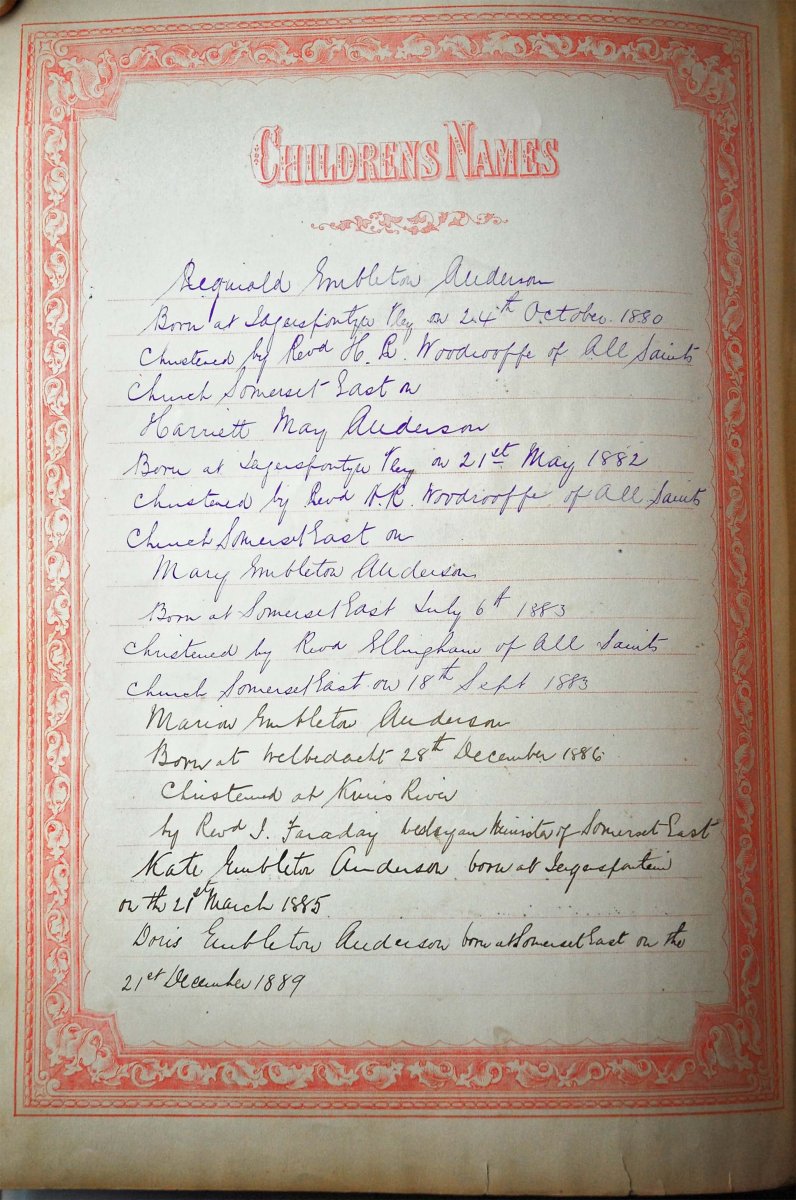 CHILDRENS NAMES
Reginald Embleton Anderson
Born at Jagersfontyn Vley on 24th October 1880
Christened by Revd H. R. Woodrooffe of All Saints
Church Somerset East on
Harriett May Anderson
Born at Jagersfontyn Vley on 21st May 1882
Christened by Revd H. R. Woodrooffe of All Saints
Church Somerset East on
Mary Embleton Anderson
Born at Somerset East July 6th 1883
Christened by Revd Ellingham of All Saints
Church Somerset East on 18th Sept 1883
Marion Embleton Anderson
Born at Welbedacht 28th December 1886
Christened at River
by Revd J. Faraday Wesleyan Minister of Somerset East
Kate Embleton Anderson born at Jagersfontein
on th 21st March 1885
Doris Embleton Anderson born at Somerset East on the
21st December 1889